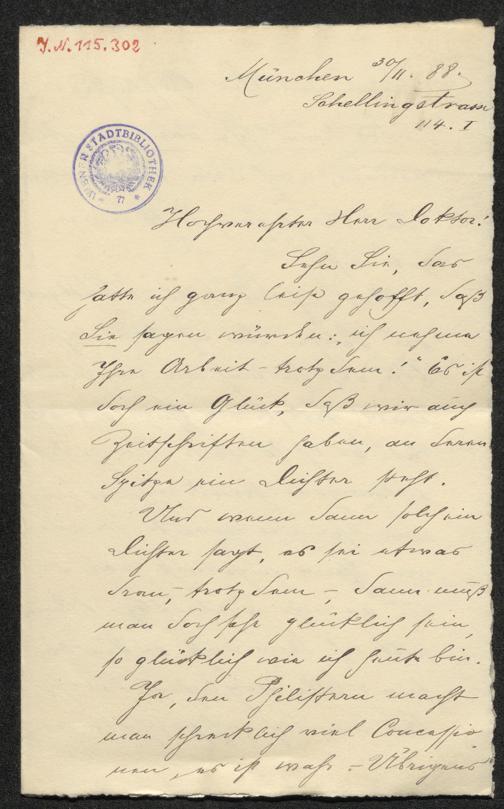 J.N. 115.302
München 30/11. 88.
Schellingstrasse
114. I
WIENER STADTBIBLIOTHEK
77
Hochverehrter Herr Doktor!
Sehn Sie, das
hatte ich ganz leise gehofft, daß
Sie sagen würden: „ich nehme
Ihre Arbeit – trotzdem!" Es ist
doch ein Glück, daß wir auch
Zeitschriften haben, an deren
Spitze ein Dichter steht.
Und wenn dann solch ein
Dichter sagt, es sei etwas
dran, trotzdem –, dann muß
man doch sehr glücklich sein,
so glücklich wie ich heute bin.
Ja, den Philistern macht
man schrecklich viel Concessio
nen, es ist wahr. – Übrigens